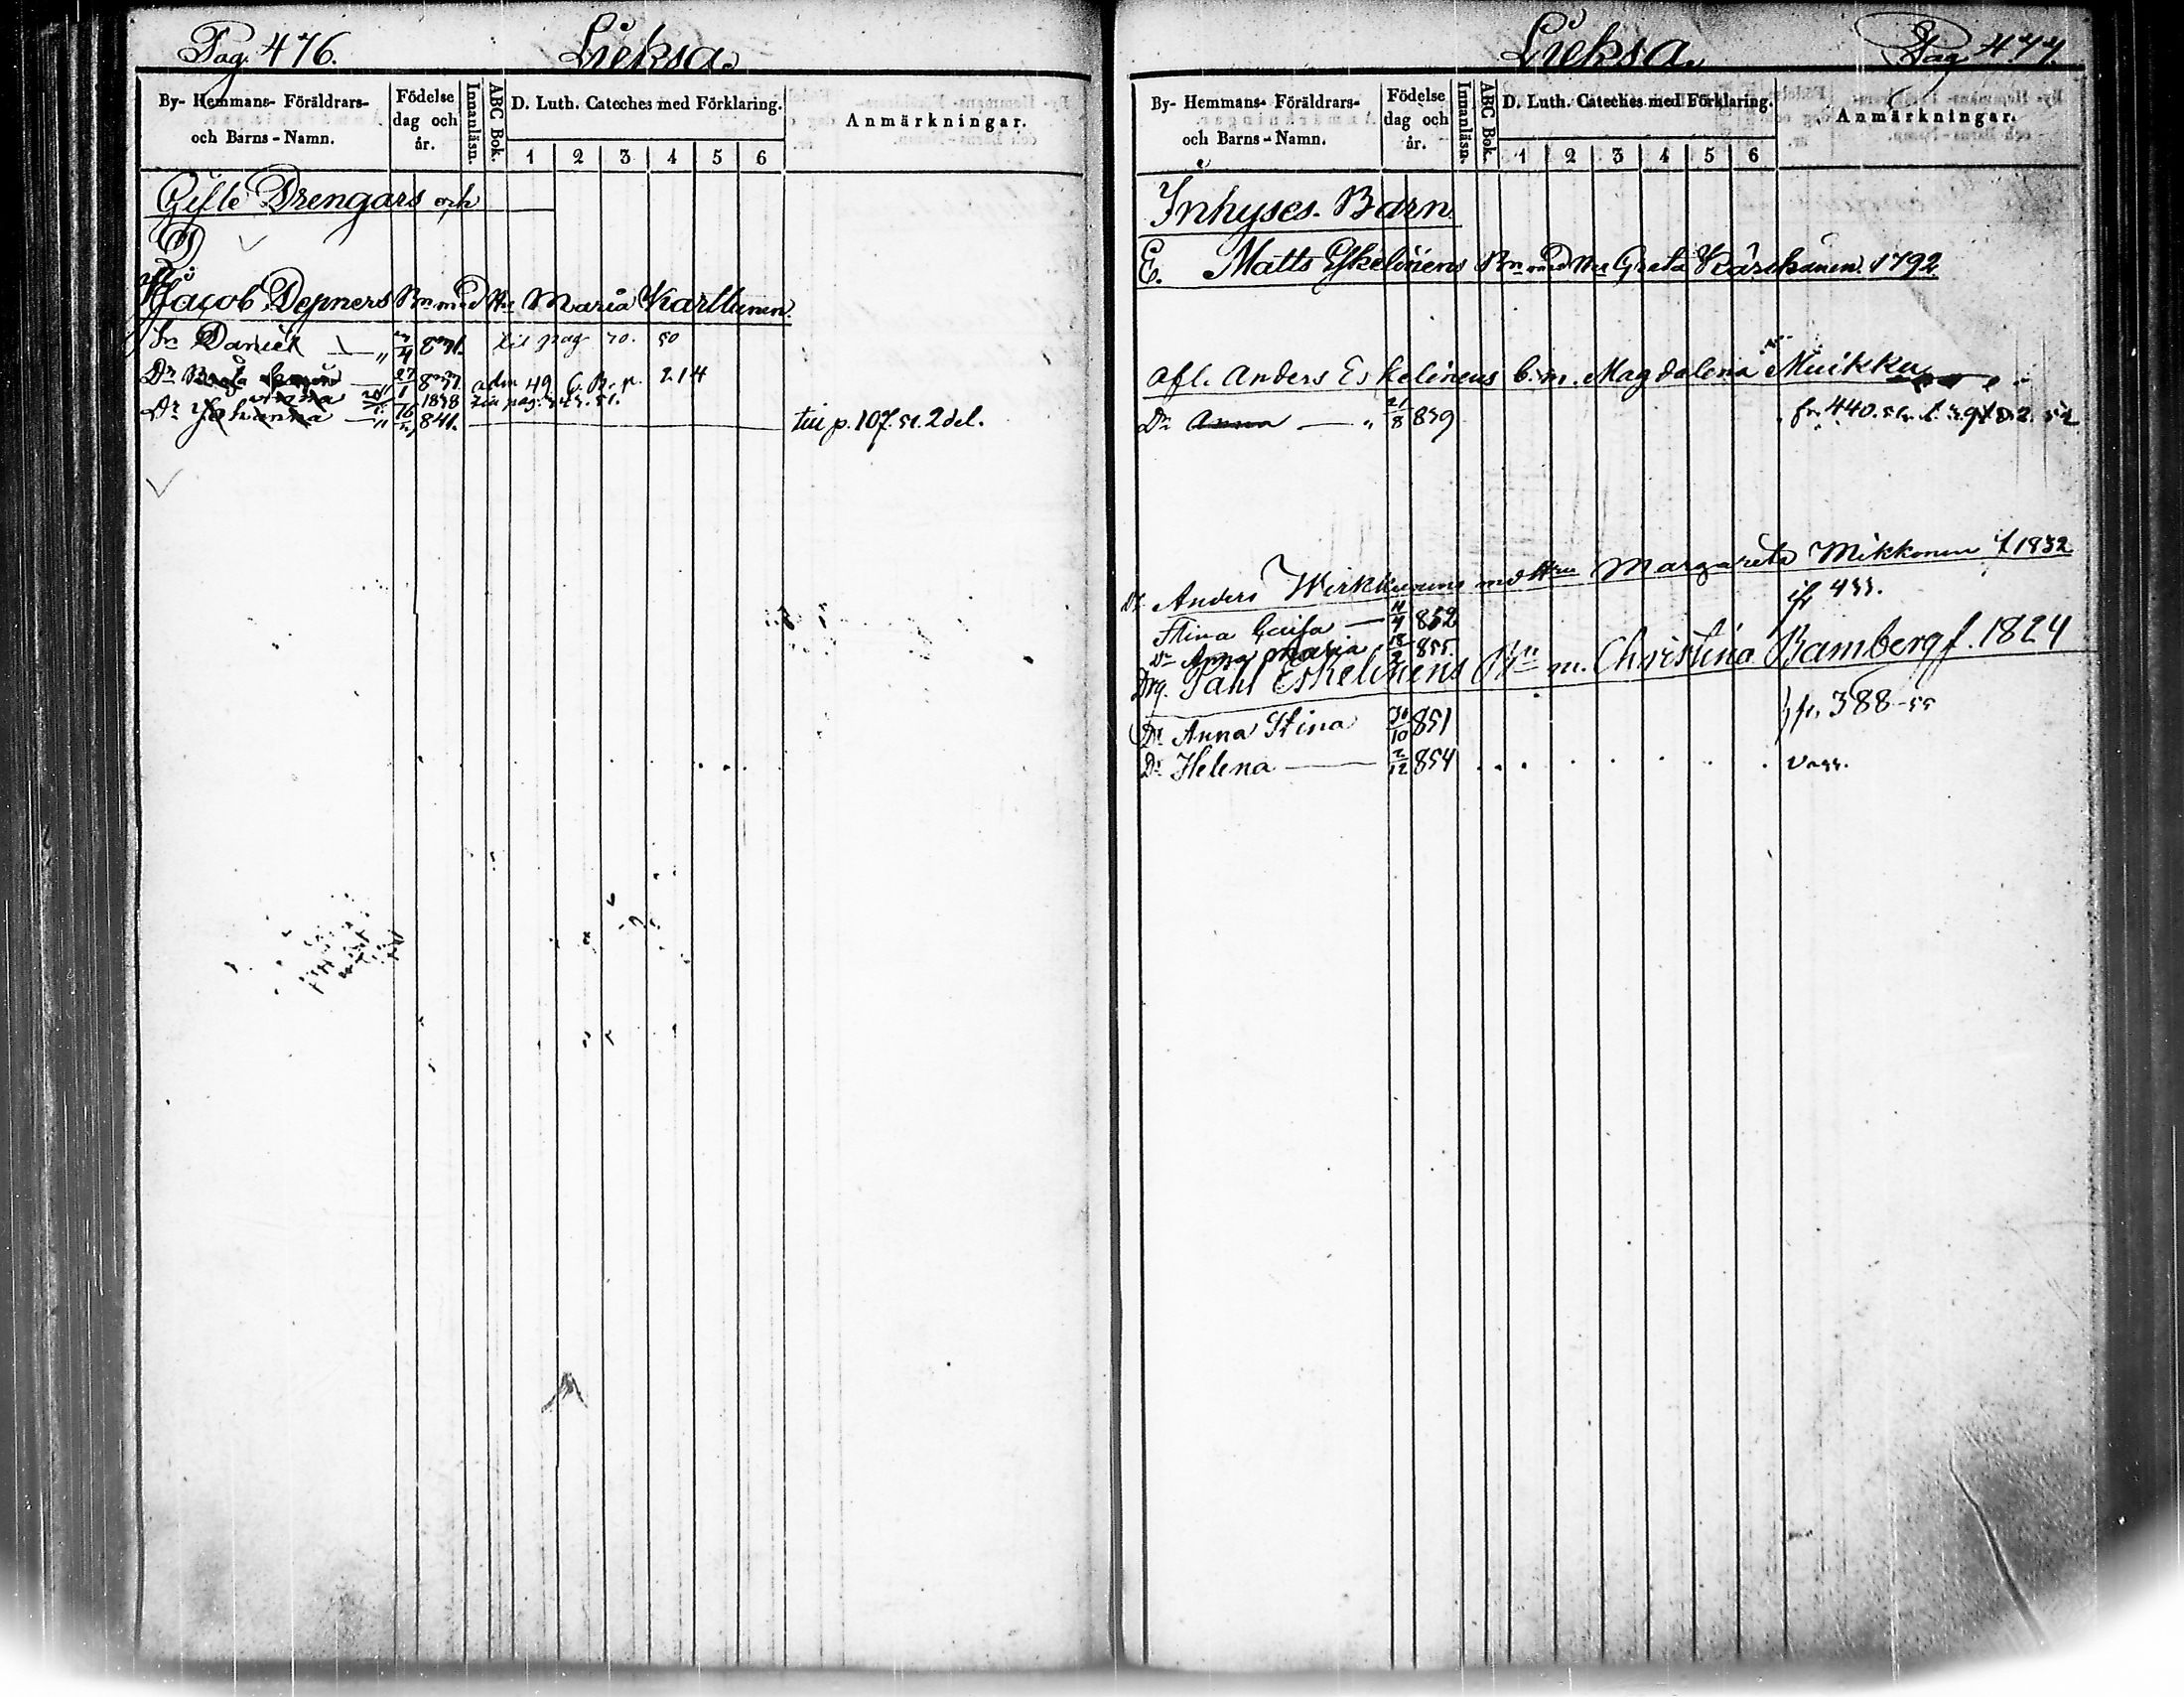 Pag. 476. Lieksa.
By- Hemmans- Föräldrars- och Barns-Namn. Födelse dag och år. Innanläsn. ABC Bok. D. Luth. Cateches med Förklaring. 1 2 3 4 5 6 Anmärkningar.
Gifte Drengars och
D
Jacob Depners Bn med Hu Maria Karttunen.
Sn Daniel — " 4 831. till pag 70. 50
Dr 27/1 837. adm 49 C. B. p. 214
Anna 1838
Dr Johanna — " 16 841. till p. 107. 51. 2 del.
Lieksa. Pag 477.
By- Hemmans- Föräldrars- och Barns-Namn. Födelse dag och år. Innanläsn. ABC Bok. D. Luth. Cateches med Förklaring. 1 2 3 4 5 6 Anmärkningar.
Inhyses. Barn
E. Matts Eskelinens Bn med Hu Greta Kärkäinen. 1792
Afl. Anders Eskelinens b. m. Magdalena Muikku
Dr Anna — " 21/8 839 fr. 440. 51.
Dr Anders Wirkkunens med Hru Margareta Mikkonen f 1832
Stina Caisa — 11/4 852 if 455.
Dr Anna Maria 18/2 855.
Drg. Påhl Eskelinens Bn m. Christina Bamberg f. 1824
Dr Anna Stina 30/10 851 } fr. 388-55
Dr Helena — 2/12 854